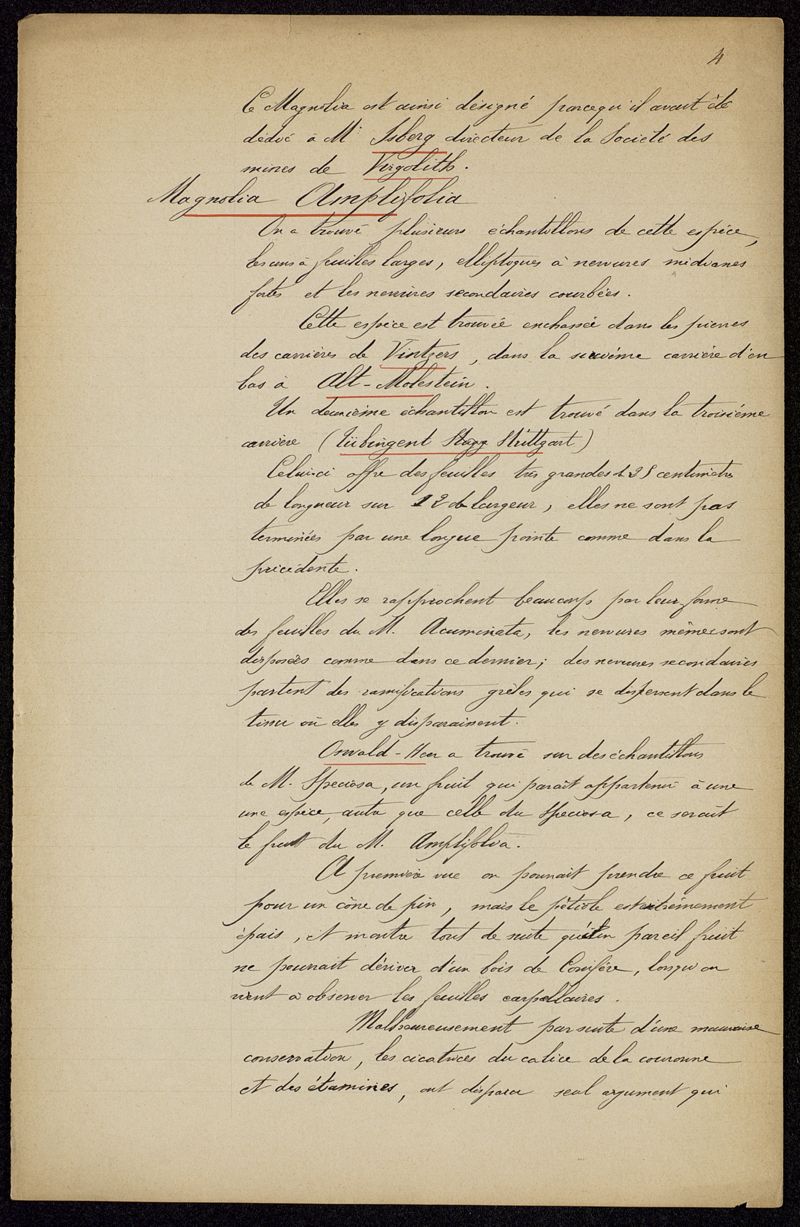 4
Ce Magnolia est ainsi désigné parcequ'il avait été
dédié à Mr Isberg directeur de la Société des
mines de Virgolith.
Magnolia Amplifolia
On a trouvé plusieurs échantillons de cette espèce,
les uns à feuilles larges, elliptiques à nervures médianes
fortes et les nervures secondaires courbées.
Cette espèce est trouvée enchassée dans les pierres
des carrières de Vintzers, dans la sixième carrière d'en
bas à Alt-Moletein.
Un deuxième échantillon est trouvé dans la troisième
carrière (Tübingent Stuttgart)
Celui ci offre des feuilles très grandes 28 centimètres
de longueur sur 12 de largeur, elles ne sont pas
terminées par une longue pointe comme dans la
précédente.
Elles se rapprochent beaucoup par leur forme
des feuilles du M. Acuminata, les nervures même sont
disposées comme dans ce dernier; des nervures secondaires
partent des ramifications grèles qui se dispersent dans le
tissu où elles y disparaissent.
Oswald-Heer a trouvé sur des échantillons
de M. Speciosa, un fruit qui paraît appartenir à une
une espèce autre que celle du speciosa, ce serait
le fruit du M. Amplifolia.
A première vue on pourrait prendre ce fruit
pour un cône de pin, mais le pétiole est extrêmement
épais, et montre tout de suite qu'un pareil fruit
ne pourrait dériver d'un bois de Conifère, lorsqu'on
vient à observer les feuilles carpellaires.
Malheureusement par suite d'une mauvaise
conservation, les cicatrices du calice de la couronne
et des étamines, ont disparu seul argument qui